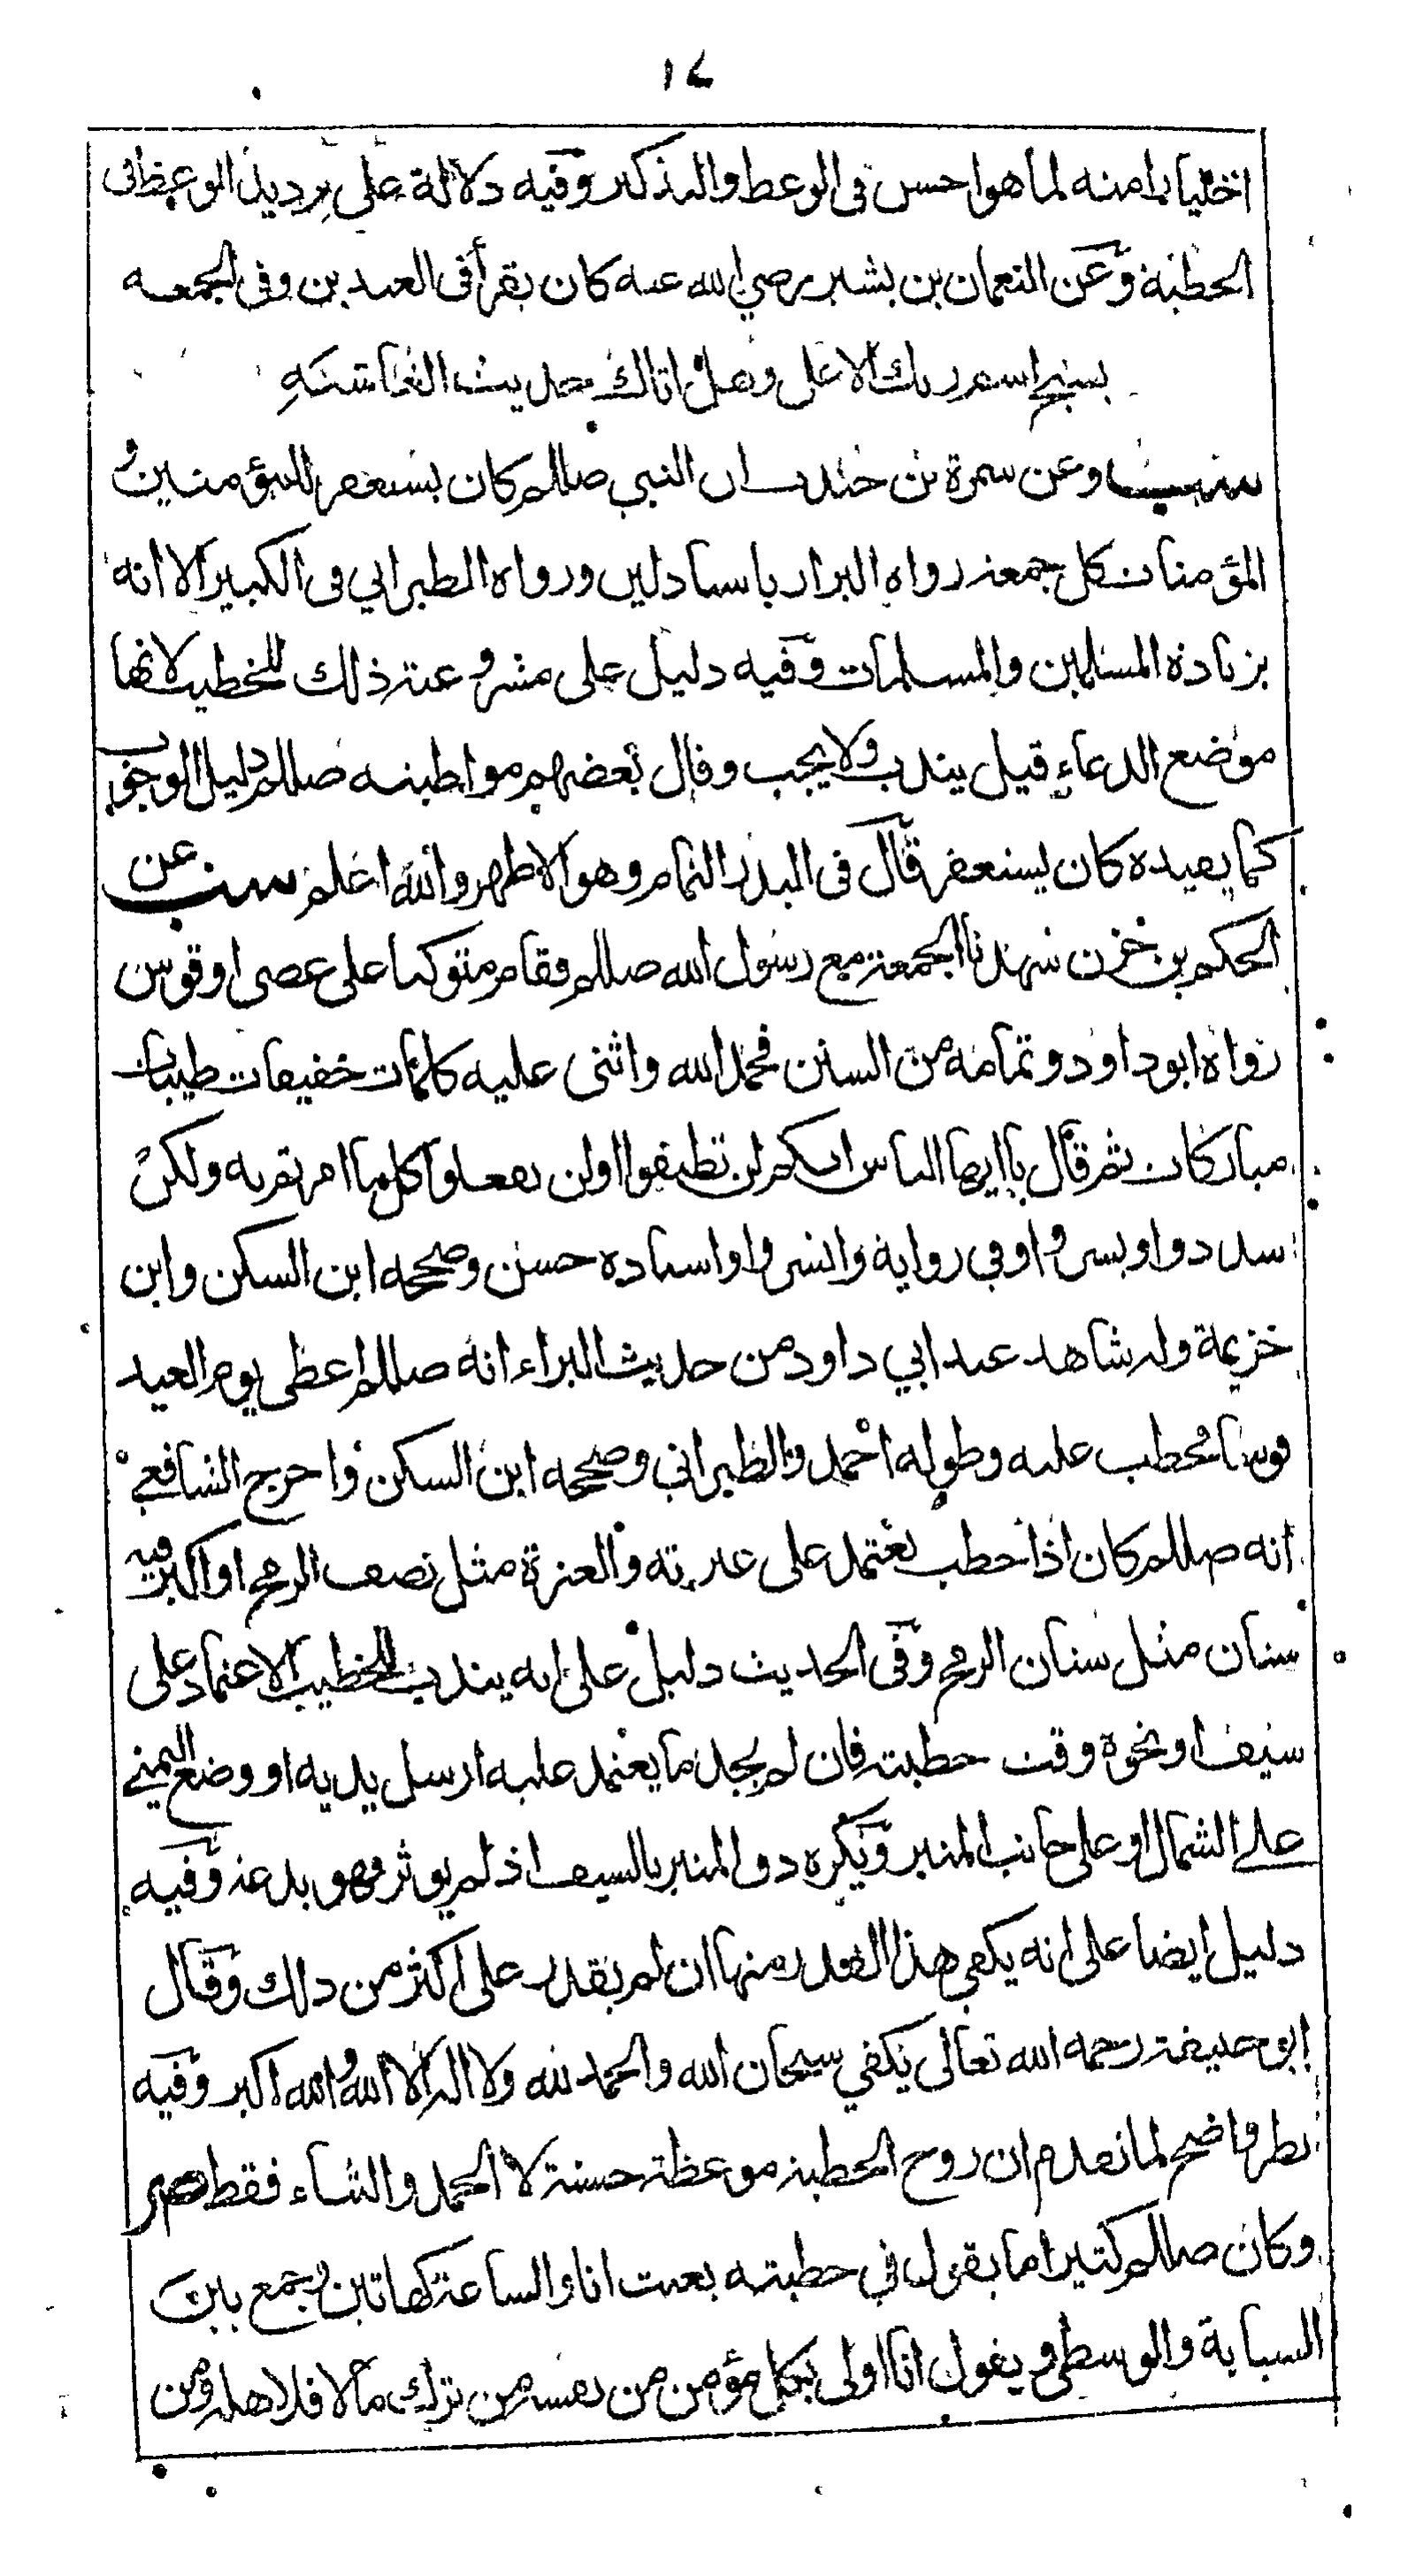 ١٧
اختيارا منه لما هو احسن فى الوعظ والتذكير وفيه دلالة على ترديد الوعظ فى
الخطبة وعن النعمان بن بشير رضي الله عنه كان يقرأ فى العيدين وفى الجمعه
بسبح اسم ربك الاعلى وهل اتاك حديث الغاشية
وعن سمرة بن جندب ان النبي صللم كان يستغفر للمؤمنين و
المؤمنات كل جمعة رواه البزار باسناد لين ورواه الطبراني فى الكبير الا انه
بزيادة المسلمين والمسلمات وفيه دليل على مشروعية ذلك للخطيب لانها
موضع الدعاء قيل يندب ولا يجب وقال بعضهم مواظبته صللم دليل الوجوب
كما يفيده كان يستغفر قال فى البدر التمام وهو الاظهر والله اعلم عن
الحكم بن حزن شهدنا الجمعة مع رسول الله صللم فقام متوكيا على عصى او قوس
رواه ابو داود وتمامه من السنن فحمد الله واثنى عليه كلمات خفيفات طيبات
مباركات ثم قال يا ايها الناس انكم لن تطيقوا او لن تفعلوا كلما امرتم به ولكن
سددوا ويسروا وفي رواية وابشروا واسناده حسن وصححه ابن السكن وابن
خزيمة وله شاهد عند ابي داود من حديث البراء انه صللم اعطى يوم العيد
قوسا فخطب عليه وطوله احمد والطبراني وصححه ابن السكن واخرج الشافعي
انه صللم كان اذا خطب يعتمد على عنزته والعنزة مثل نصف الرمح او اكبر فيه
سنان مثل سنان الرمح وفى الحديث دليل على انه يندب للخطيب الاعتماد على
سيف او نحوه وقت خطبته فان لم يجد ما يعتمد عليه ارسل يديه او وضع اليمنى
على الشمال او على جانب المنبر ويكره دق المنبر بالسيف اذ لم يوثر فهو بدعة وفيه
دليل ايضا على انه يكفي هذا القدر منها ان لم يقدر على اكثر من ذلك وقال
ابو حنيفة رحمه الله تعالى يكفي سبحان الله والحمد لله ولا اله الا الله والله اكبر وفيه
نظر واضح لما تقدم ان روح الخطبة موعظة حسنة لا الحمد والثناء فقط
وكان صللم كثيرا ما يقول في خطبته بعثت انا والساعة كهاتين وجمع بين
السبابة والوسطى ويقول انا اولى بكل مؤمن من نفسه من ترك مالا فلاهله ومن